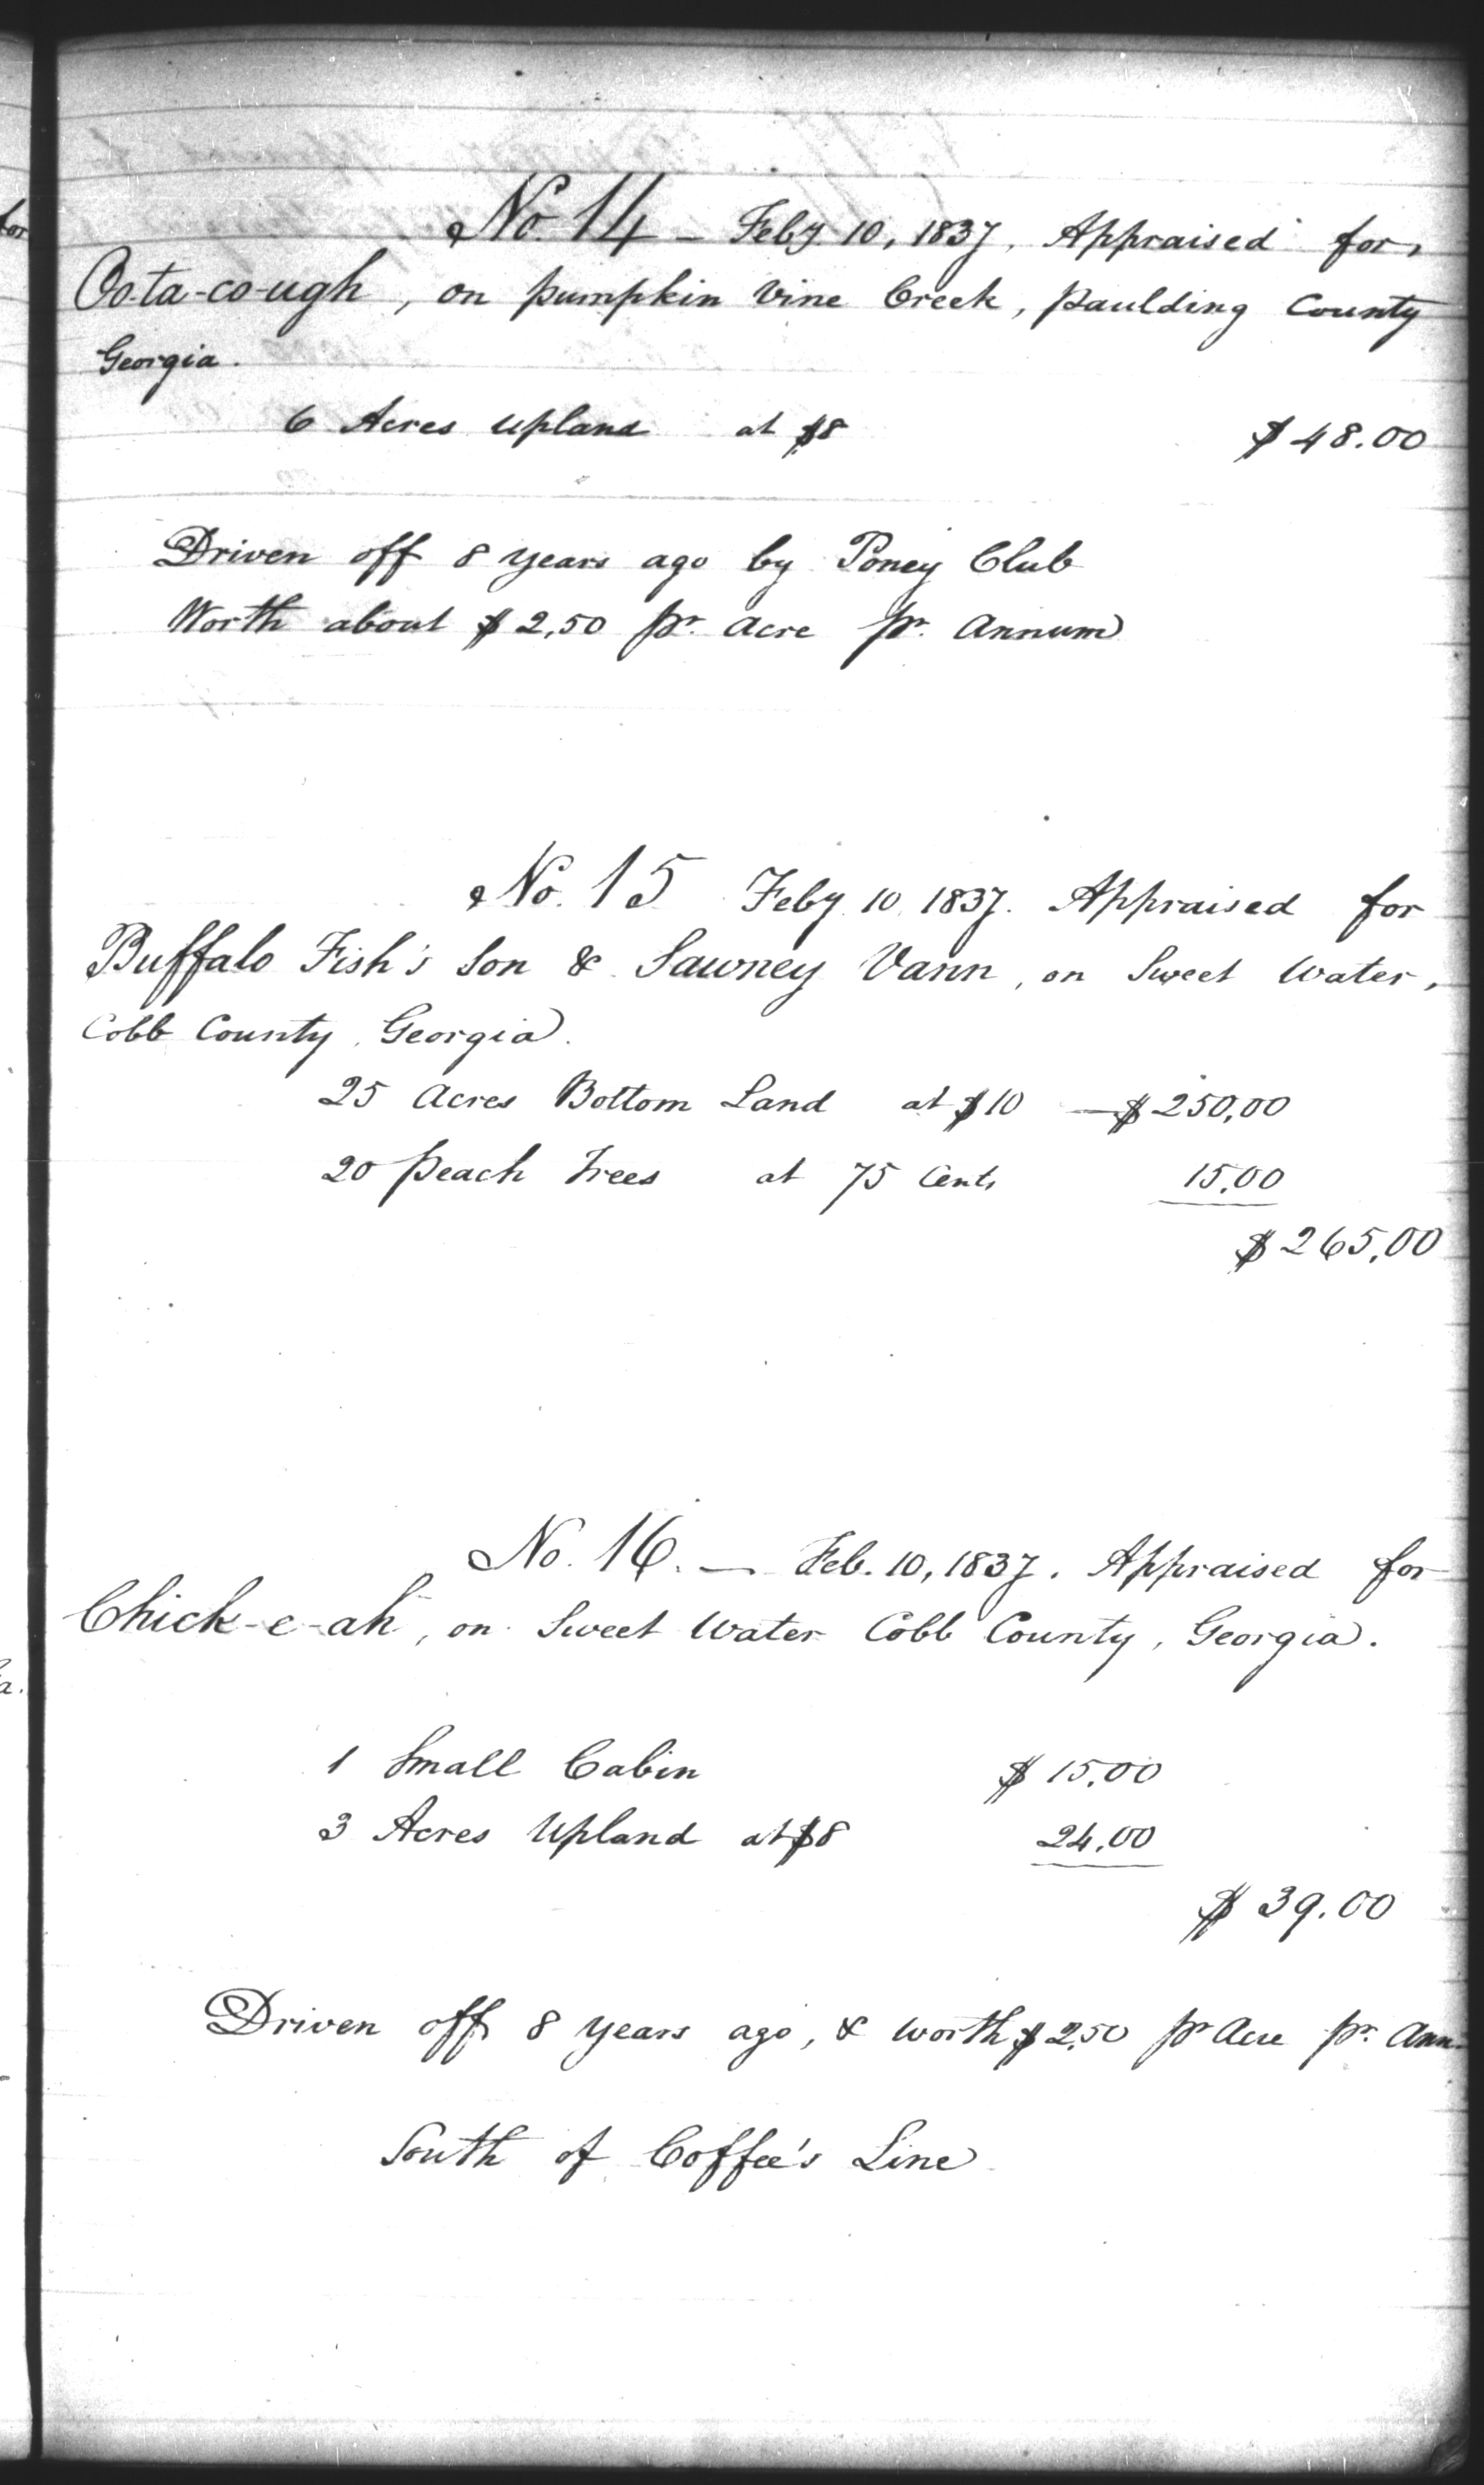 for
No. 14 – Feby 10, 1837. Appraised for,
Oo-ta-co-ugh, on pumpkin Vine Creek, paulding County
Georgia.
6 Acres Upland at $8 $48.00
Driven off 8 years ago by Poney Club
Worth about $2,50 pr. acre pr. Annum
No. 15 Feby 10 1837. Appraised for
Buffalo Fish's Son & Sawney Vann, on Sweet Water,
Cobb County, Georgia.
25 Acres Bottom Land at $10 — $250,00
20 peach Trees at 75 Cents 15,00
$265,00
No. 16. — Feb. 10, 1837. Appraised for
Chick-e-ah, on Sweet Water Cobb County, Georgia.
a.
1 Small Cabin $15,00
3 Acres Upland at $8 24,00
$39.00
Driven off 8 years ago, & worth $2,50 pr Acre pr. Ann.
South of Coffee's Line